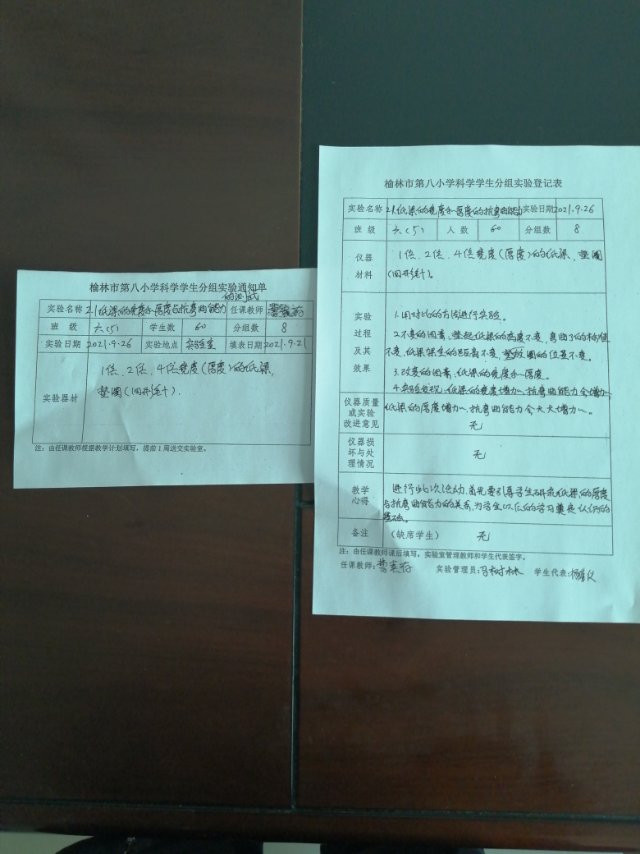 榆林市第八小学科学学生分组实验通知单
实验名称 2.1纸梁的宽度与厚度与抗弯曲能力的测试 任课教师
班 级 六(5) 学生数 60 分组数 8
实验日期 2021.9.26 实验地点 实验室 填表日期 2021.9.21
实验器材 1倍、2倍、4倍宽度(厚度)的纸梁、
垫圈(回形针).
注:由任课教师根据教学计划填写,提前1周送交实验室。
榆林市第八小学科学学生分组实验登记表
实验名称 2.1纸梁的宽度与厚度的抗弯曲能力 实验日期 2021.9.26
班 级 六(5) 人 数 60 分组数 8
仪器材料 1倍、2倍、4倍宽度(厚度)的纸梁、垫圈
(回形针).
实验过程及其效果 1.用对比的方法进行实验.
2.不变的因素,垫起纸梁的高度不变,弯曲的标准
不变,纸梁之间的距离不变,垫圈的位置不变.
3.改变的因素,纸梁的宽度与厚度.
4.实验发现:纸梁的宽度增加,抗弯曲能力会增加,
纸梁的厚度增加,抗弯曲能力会大大增加.
仪器质量或实验改进意见 无
仪器损坏与处理情况 无
教学心得 进行此次活动,首先要引导学生研究纸梁的厚度
与抗弯曲能力的关系,为学生以后的学习奠定认识的
基础.
备注 (缺席学生) 无
注:由任课教师课后填写,实验室管理教师和学生代表签字。
任课教师: 实验管理员: 学生代表: